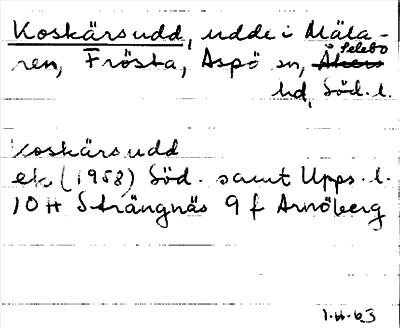 Koskärsudd, udde i Mäla-
ren, Frösta, Aspö sn, Åkers Selebo
hd, Söd. l.
Koskärsudd
ek. (1958) Söd. samt Upps. l.
10 H Strängnäs 9 f Arnöberg